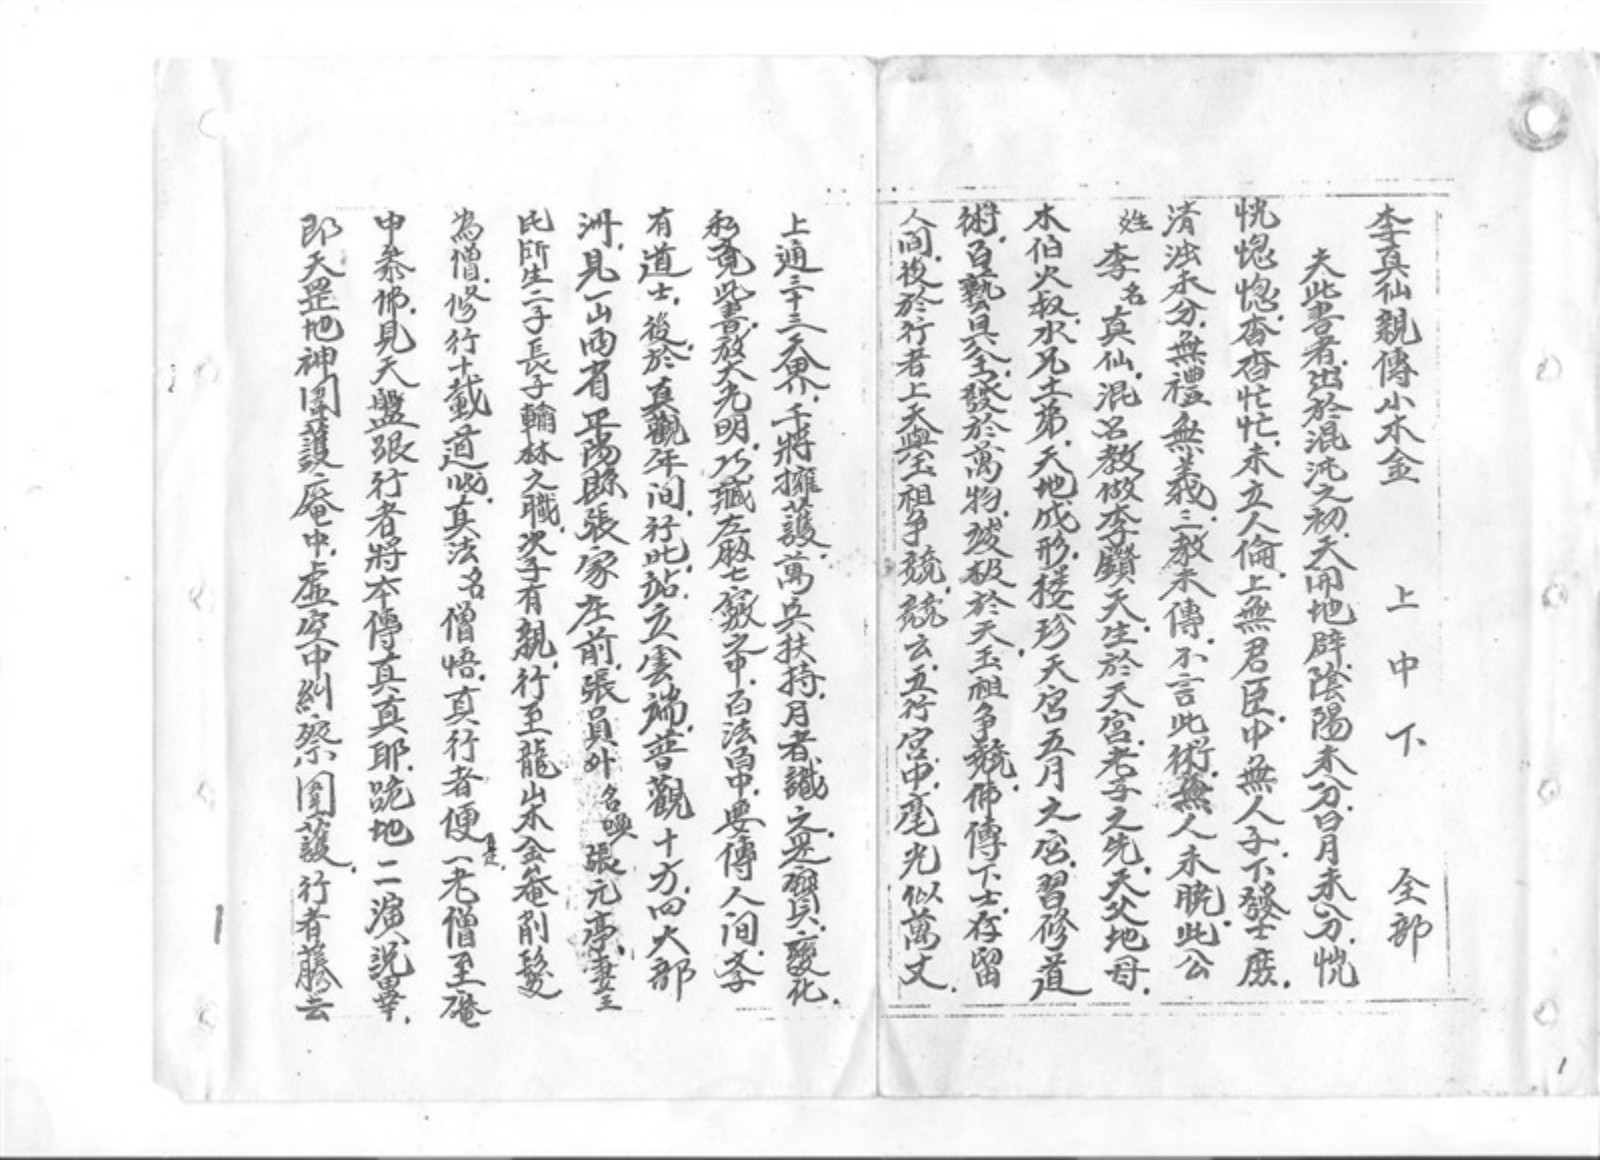 李真仙親傳小木金 上中下 全部
夫此書者出於混沌之初.天開地辟.陰陽未分.日月未分.恍
恍惚惚.杳杳忙忙.未立人倫.上無君臣.中無人子.下發士庶.
清濁未分.無禮無義.三教未傳.不言此術.無人未曉.此公
姓李名真仙.混名教做李鑽天.生於天宮.老子之先.天父地母.
木伯火叔.水兄土弟.天地成形.接珍天宮五月大宮.習修道
術.百藝具全.發於萬物.拔於天.玉祖争競.佛傳下士.存留
人間.後於行者上天與玉祖争競.競云.五行宮中.毫光似萬丈.
上通三十三天界.千將擁護.萬兵扶持.月者識之.是寶貝.變化.
私覓此書.放大光明.巧藏左肋七竅之中.百法百中.要傳人間.李
有道士.後於真觀年间.行此.站立雲端.普觀十方.四大部
洲.見一山西省平陽縣張家庄前.張員外名喚張元亭.妻王
氏所生二子.長子翰林之職.次子有親.行至龍山木金菴削髮
為僧.修行十載.道成真法名僧悟.真行者便是一老僧至庵
中参佛.見天盤張行者將本傳真真耶.跪地二演說畢.
即天罡地神圍護庵中.虛空中糾察圍護.行者騰云
1